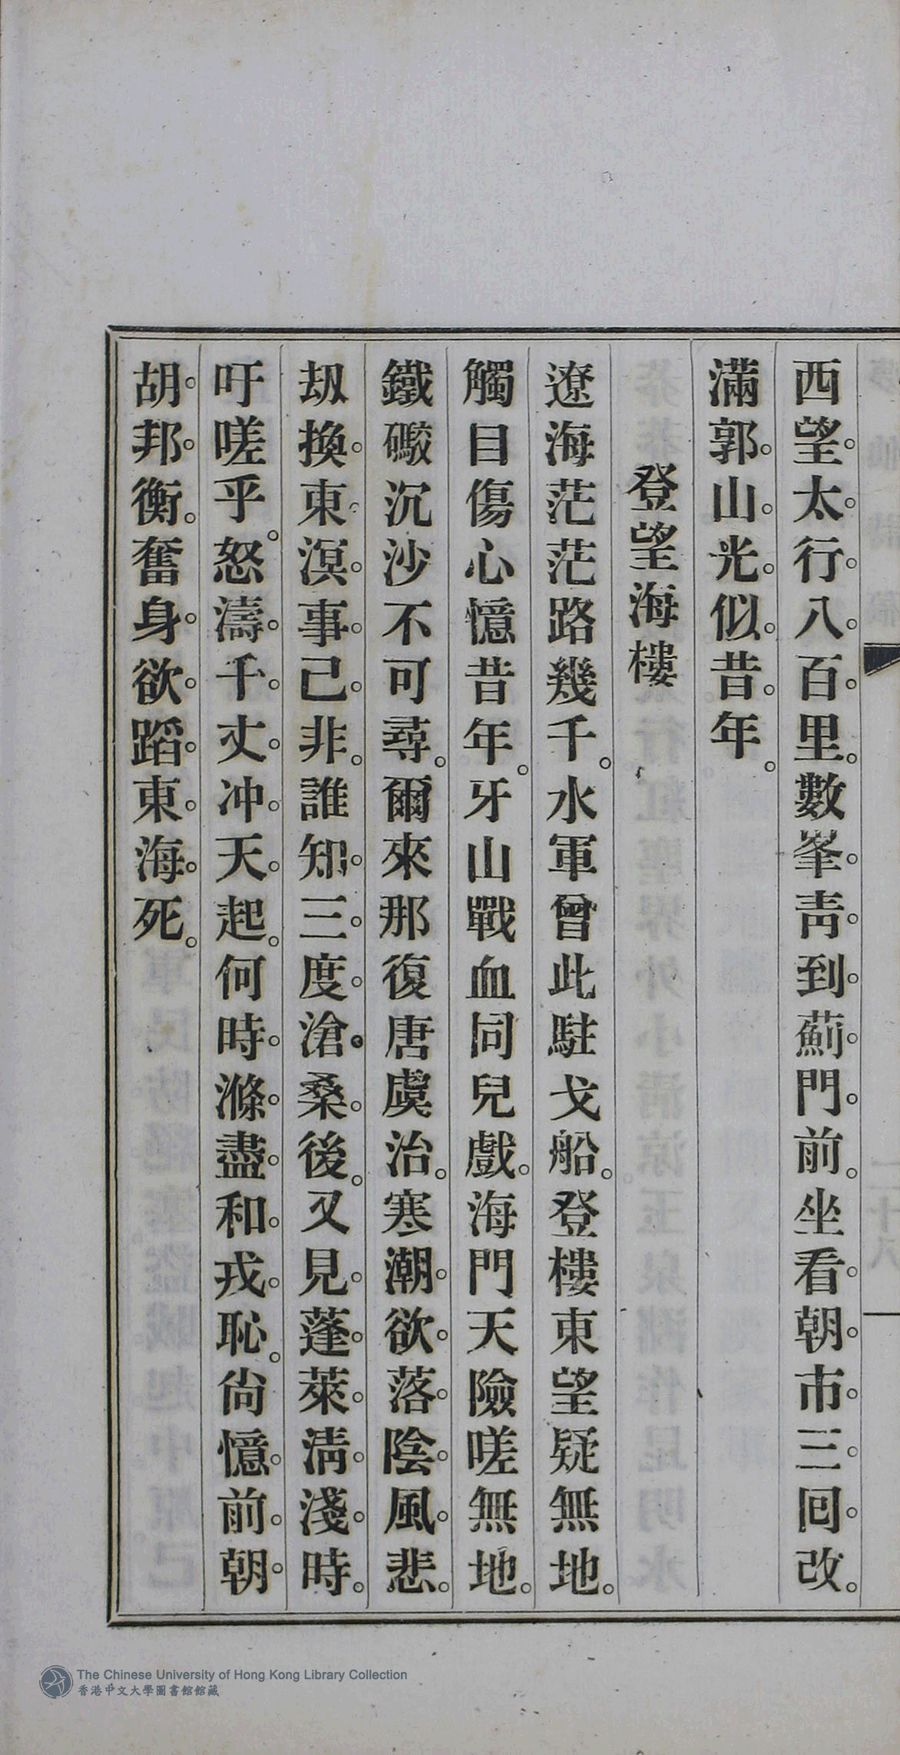 西望太行八百里。數峯靑到薊門前。坐看朝市三回改。
滿郭山光似昔年。
登望海樓
遼海茫茫路幾千。水軍曾此駐戈船。登樓東望疑無地。
觸目傷心憶昔年。牙山戰血同兒戲。海門天險嗟無地。
鐵礮沉沙不可尋。爾來那復唐虞治。寒潮欲落陰風悲。
刼換東溟事已非。誰知三度滄桑後。又見蓬萊淸淺時。
吁嗟乎。怒濤千丈冲天起。何時滌盡和戎恥。尙憶前朝
胡邦衡。奮身欲蹈東海死。
The Chinese University of Hong Kong Library Collection
香港中文大學圖書館館藏